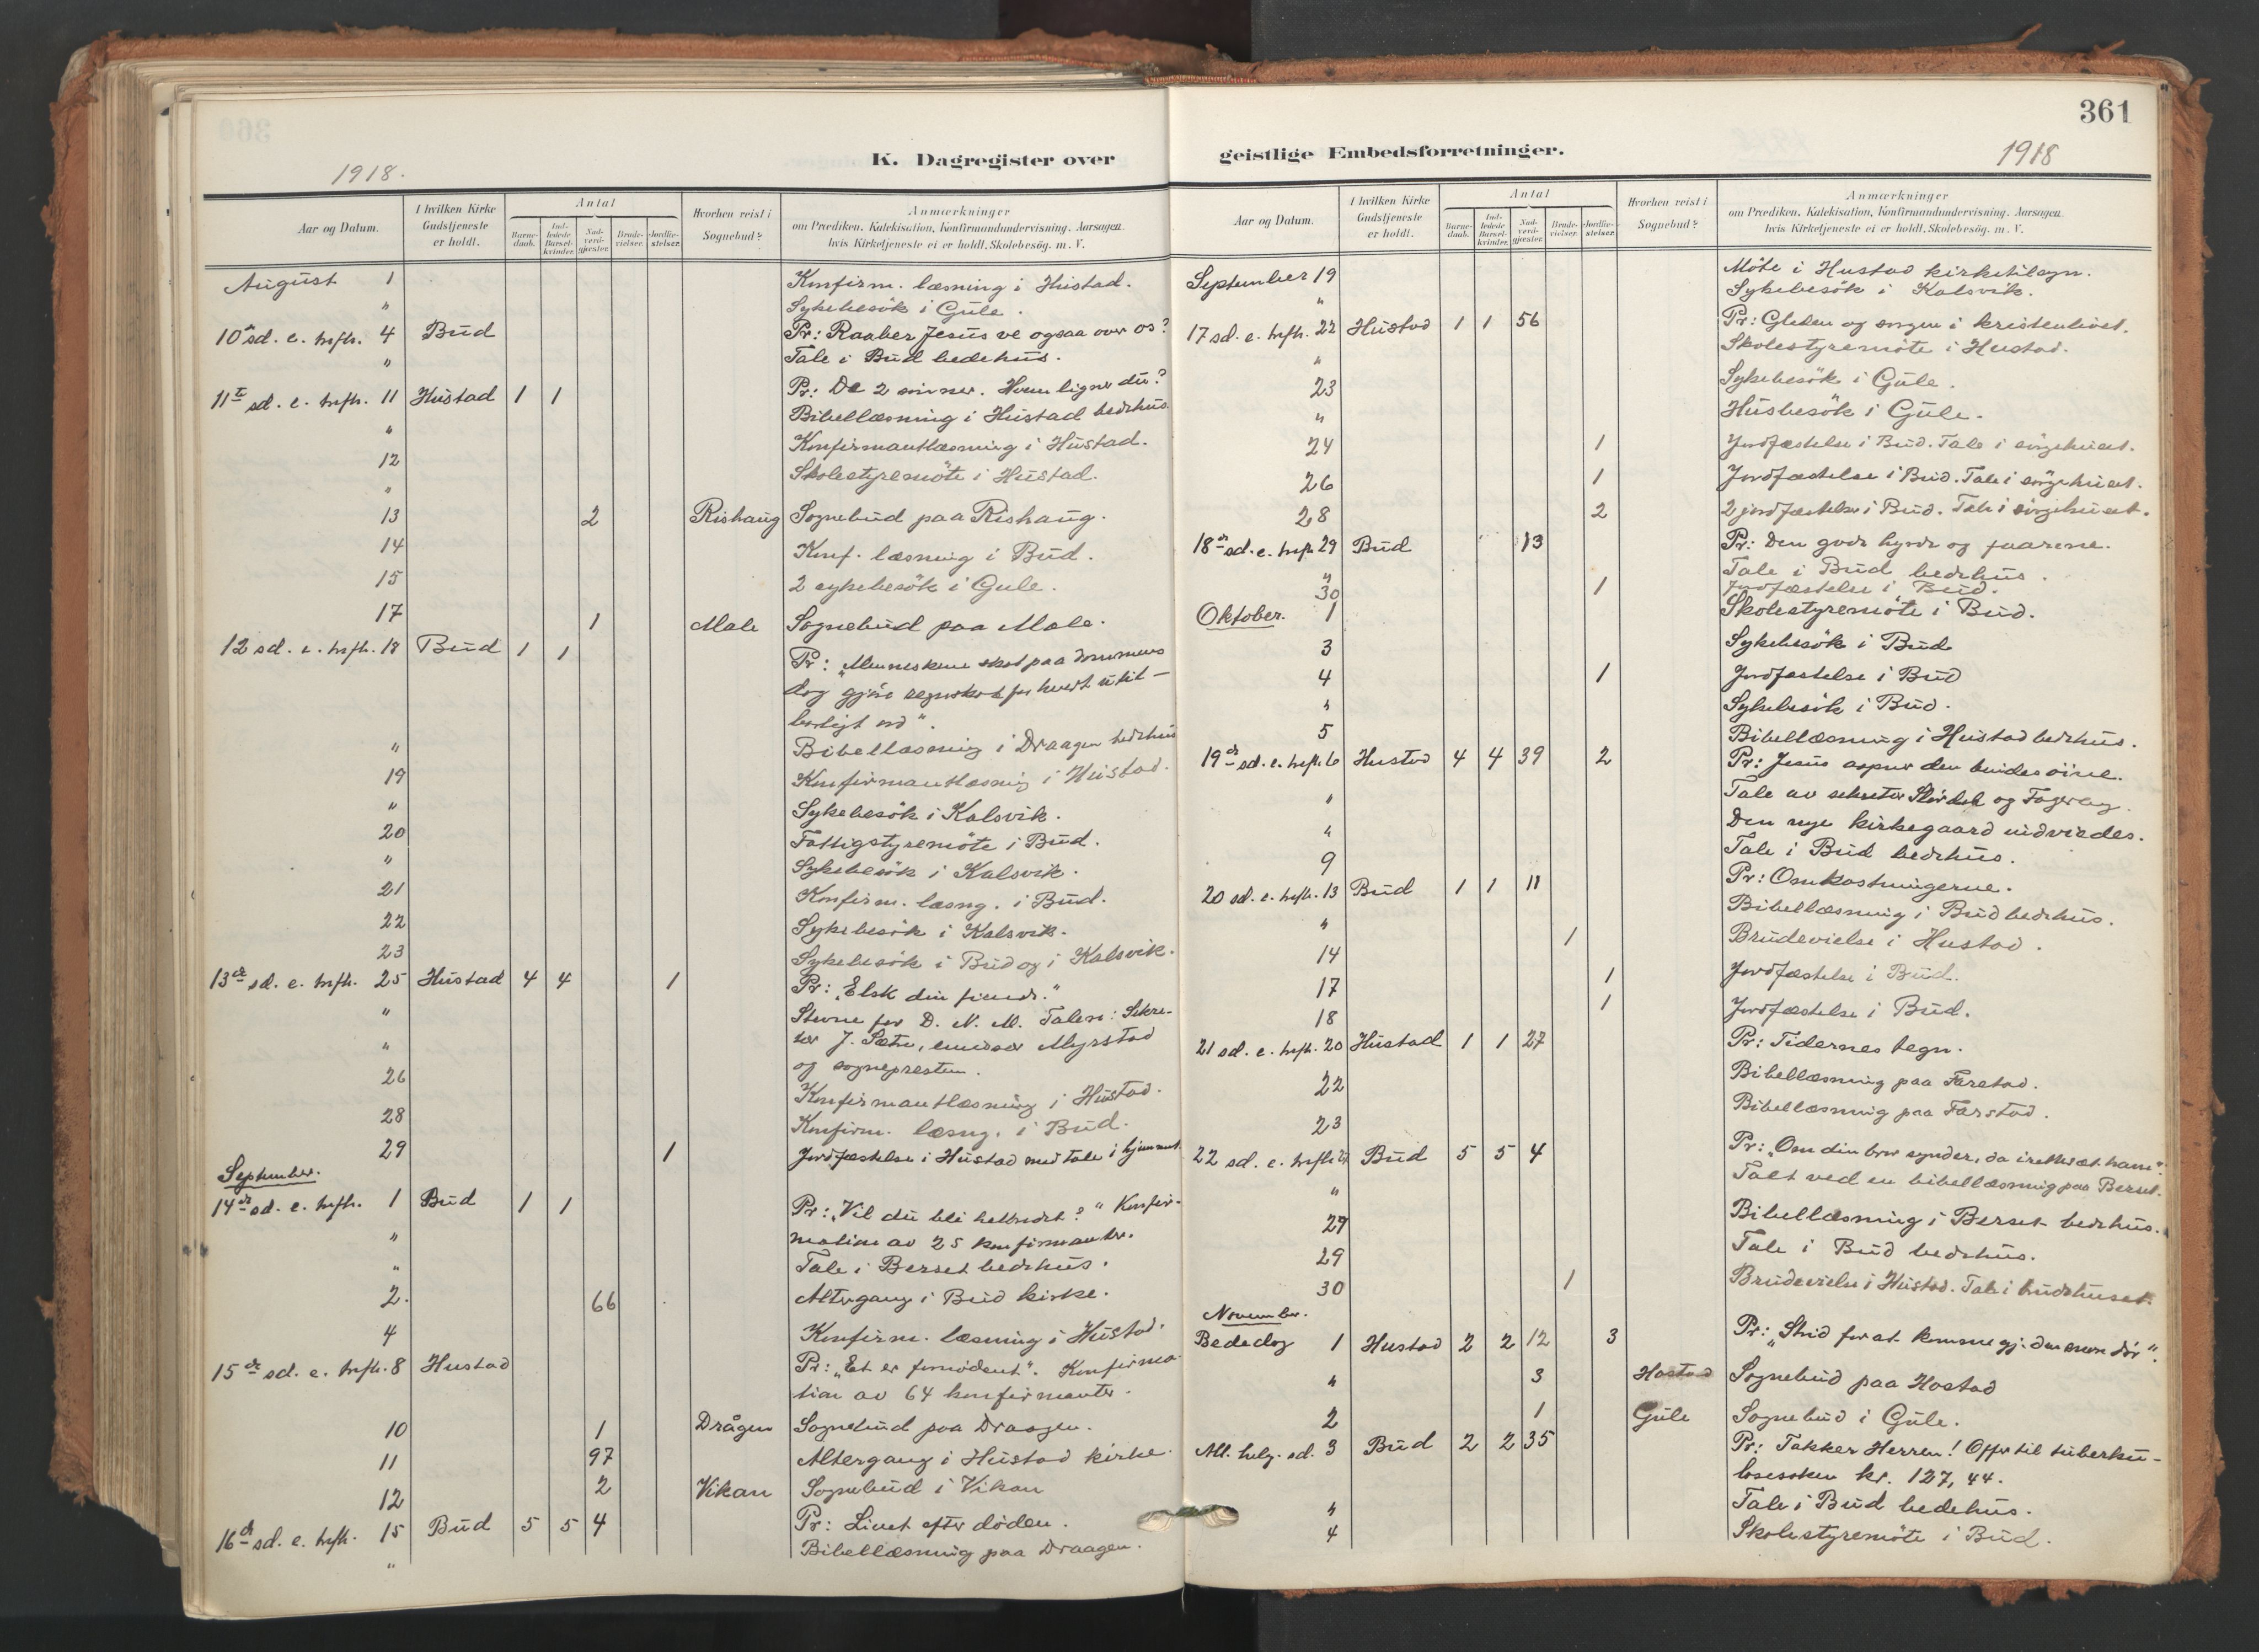 361
K. Dagregister over
1918.
Aar og Datum.
I hvilken Kirke Gudstjeneste er holdt.
Antal
Barne-daab.
Ind-ledede Barsel-kvinder.
Nad-verd-gjester.
Brude-vielser.
Jordfæ-stelser.
Hvorhen reist i Sognebud?
Anmærkninger
om Prædiken, Katekisation, Konfirmandundervisning, Aarsagen,
hvis Kirketjeneste ei er holdt, Skolebesøg, m. V.
August 1 Konfirm. læsning i Hustad.
" Sykebesök i Gule.
10de sd. e. trefh. 4 Bud Pr: Raaber Jesus ve ogsaa over os?
" Tale i Bud bedehus.
11te sd. e. trefh. 11 Hustad 1 1 Pr: De 2 sönner. Hvem ligner du?
" Bibellæsning i Hustad bedehus.
12 Konfirmantlæsning i Hustad.
" Skolestyremöte i Hustad.
13 2 Rishaug Sognebud paa Rishaug.
14 Konf. læsning i Bud.
15 2 sykebesök i Gule.
17 1 Male Sognebud paa Male.
12 sd. e. trefh. 18 Bud 1 1 Pr: "Menneskene skal paa dommens
dag gjöre regnskab for hvert util-
börligt ord".
" Bibellæsning i Draagen bedehus
19 Konfirmantlæsning i Hustad.
" Sykebesök i Kalsvik.
20 Fattigstyremöte i Bud.
" Sykebesök i Kalsvik.
21 Konfirm. læsng. i Bud.
22 Sykebesök i Kalsvik.
23 Sykebesök i Bud og i Kalsvik.
13de sd. e. trefh. 25 Hustad 4 4 1 Pr: "Elsk din fiende."
" Stevne for D. N. M. Talere: Sekre-
" tær J. Sætre, emissær Myrstad
og sognepresten.
26 Konfirmantlæsning i Hustad.
28 Konfirm. læsng. i Bud.
29 1 Jordfæstelse i Hustad med tale i hjemmet.
September.
14de sd. e. trefh. 1 Bud 1 1 Pr: "Vil du bli helbredet?" Konfir-
" mation av 25 konfirmanter.
" Tale i Berset bedehus.
2. 66 Altergang i Bud kirke.
4 Konfirm. læsning i Hustad.
15de sd. e. trefh. 8 Hustad Pr: "Et er fornödent". Konfirma-
tion av 64 konfirmanter.
10 1 Drågen Sognebud paa Draagen.
11 97 Altergang i Hustad kirke.
12 2 Vikan Sognebud i Vikan
16de sd. e. trefh. 15 Bud 5 5 4 Pr: Livet efter döden.
" Bibellæsning paa Draagen.
361
geistlige Embedsforretninger.
1918
Aar og Datum.
I hvilken Kirke Gudstjeneste er holdt.
Antal
Barne-daab.
Ind-ledede Barsel-kvinder.
Nad-verd-gjester.
Brude-vielser.
Jordfæ-stelser.
Hvorhen reist i Sognebud?
Anmærkninger
om Prædiken, Katekisation, Konfirmandundervisning, Aarsagen,
hvis Kirketjeneste ei er holdt, Skolebesøg, m. V.
September 19 Möte i Hustad kirketilsyn.
" Sykebesök i Kalsvik.
17 sd. e. trefh. 22 Hustad 1 1 56 Pr: Gleden og sorgen i kristenlivet.
" Skolestyremöte i Hustad.
23 Sykebesök i Gule.
" Husbesök i Gule.
24 1 Jordfæstelse i Bud. Tale i sörgehuset.
26 1 Jordfæstelse i Bud. Tale i sörgehuset.
28 2 2 jordfæstelser i Bud. Tale i sörgehuset.
18de sd. e. trefh. 29 Bud 13 Pr: Den gode hyrde og faarene.
" Tale i Bud bedehus.
30 1 Jordfæstelse i Bud.
Oktober. 1 Skolestyremöte i Bud.
3 Sykebesök i Bud
4 1 Jordfæstelse i Bud
" Sykebesök i Bud.
5 Bibellæsning i Hustad bedehus.
19de sd. e. trefh. 6 Hustad 4 4 39 2 Pr: Jesus aapner den blindes öine.
" Tale av sekretær Stördal og Fagervag.
" Den nye kirkegaard indviedes.
9 Tale i Bud bedehus.
20 sd. e. trefh. 13 Bud 1 1 11 Pr: Omkostningerne.
" Bibellæsning i Bud bedehus.
14 1 Brudevielse i Hustad.
17 1 Jordfæstelse i Bud.
18 1 Jordfæstelse i Bud.
21 sd. e. trefh. 20 Hustad 1 1 27 Pr: Tidernes tegn.
22 Bibellæsning paa Farstad.
23 Bibellæsning paa Farstad.
22 sd. e. trefh. 27 Bud 5 5 4 Pr: "Om din bror synder, da irettesæt ham".
" Talt ved en bibellæsning paa Berset.
29 Bibellæsning i Berset bedehus.
29 Tale i Bud bedehus.
30 1 Brudevielse i Hustad. Tale i brudehuset.
November.
Bededag 1 Hustad 2 2 12 3 Pr: "Strid for at komme gj. den snevre dör".
" 3 Hostad Sognebud paa Hostad
2 1 Gule Sognebud i Gule.
All. helg. sd. 3 Bud 2 2 35 Pr: Takker Herren! Offer til tuberku-
losesaken kr. 127,44.
" Tale i Bud bedehus.
4 Skolestyremöte i Bud.